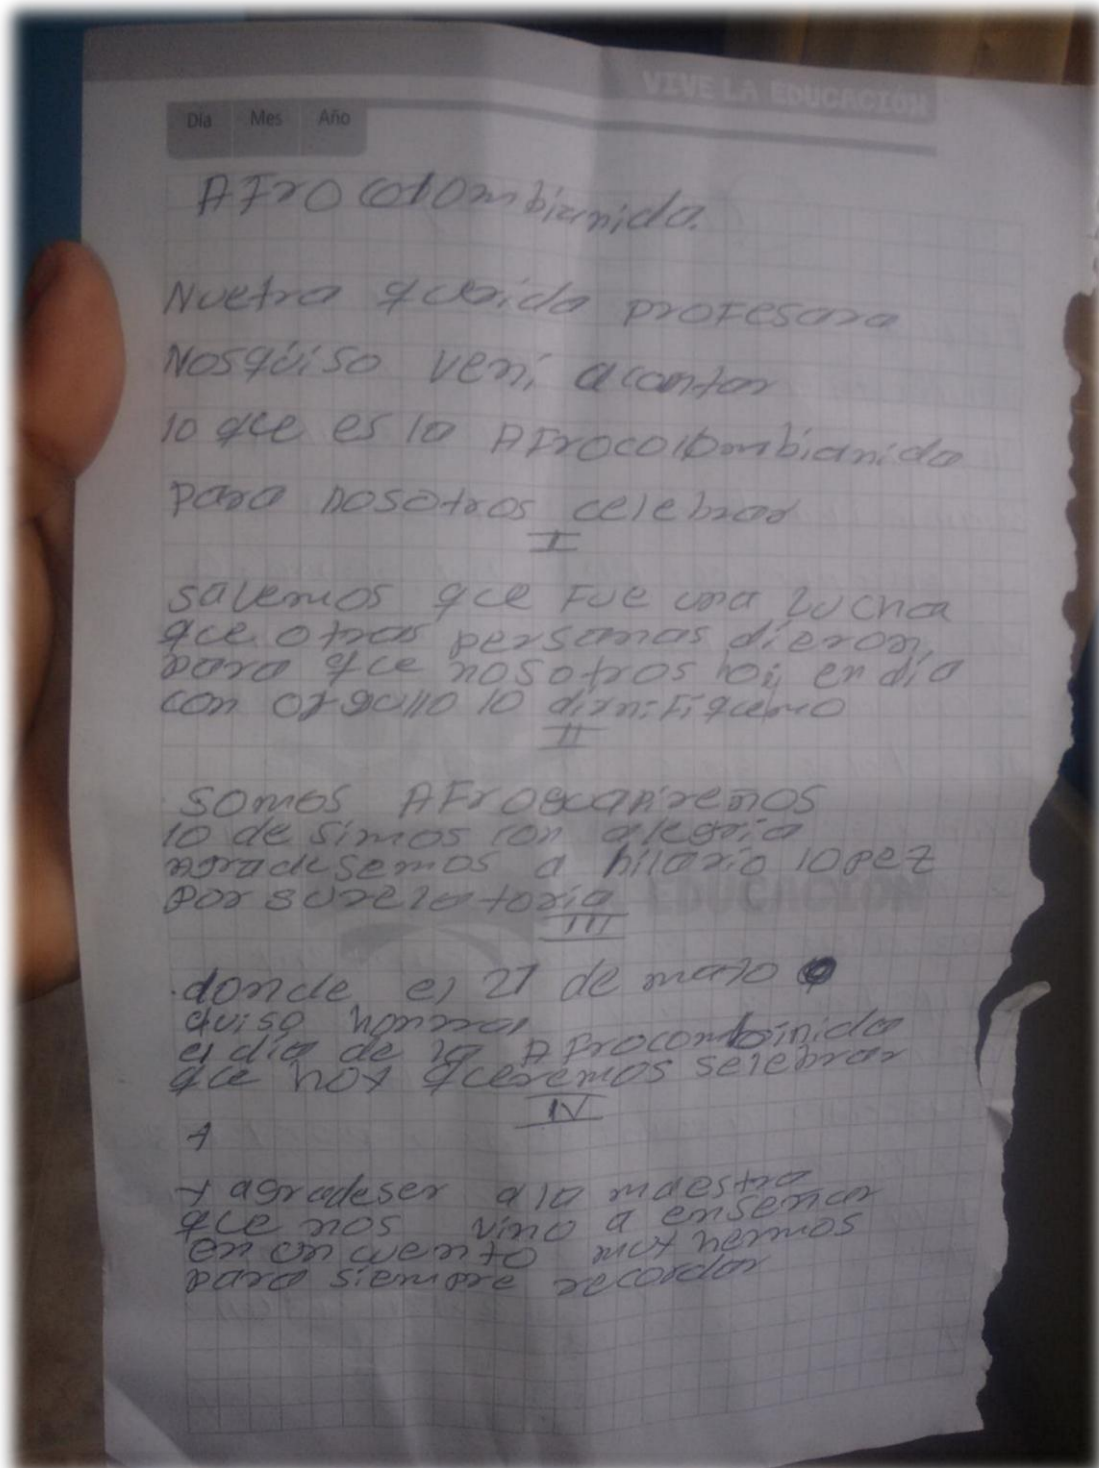 VIVE LA EDUCACIÓN
Día Mes Año
AFrocolombianida.
Nuetra querida profesora
Nosquiso veni a cantar
lo que es la AFrocolombianida
para nosotros celebrar
I
savemos que Fue una lucha
que otras personas dieron,
para que nosotros hoi en día
con orgullo lo dirnifiquemo
II
somos
lo desimos con alegria
agradesemos a hilario lopez
por su relatoria
III
donde el 21 de mayo
quiso honrra
el dia de la AFrocombinida
que hoy queremos selebrar
IV
A
y agradeser a la maestra
que nos vino a enseñar
en un cuento muy hermos
para siempre recordar
EDUCACIÓN